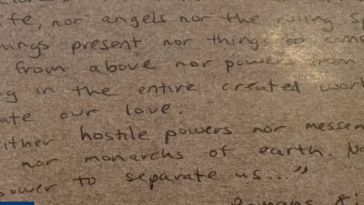 ife, nor angels nor the ruling s
hings present nor things to come
from above nor power from
g in the entire created wor
ate our love.
either hostile powers nor messen
nor monarchs of earth. No
power to separate us..."
Romans 8